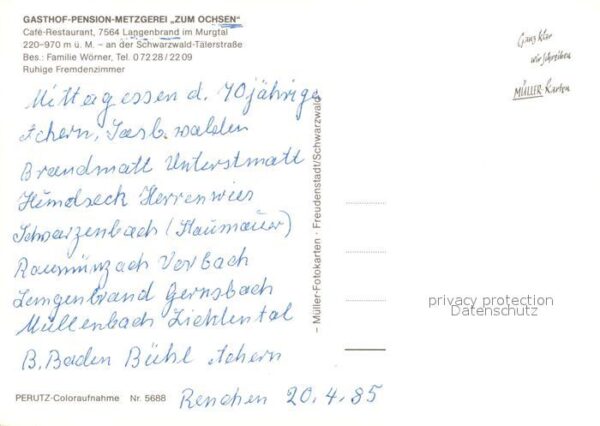 GASTHOF-PENSION-METZGEREI „ZUM OCHSEN"
Café-Restaurant, 7564 Langenbrand im Murgtal
220–970 m ü. M. – an der Schwarzwald-Tälerstraße
Bes.: Familie Wörner, Tel. 0 72 28 / 22 09
Ruhige Fremdenzimmer
Ganz klar
wir schreiben
MÜLLER-Karten
Mittagessen d. 70jährige
Achern, Sasb.walden
Brandmatt Unterstmatt
Hundseck Herrenwies
Schwarzenbach (Staumauer)
Raumünzach Vorbach
Langenbrand Gernsbach
Müllenbach
B.Baden Bühl Achern
Renchen 20.4.85
– Müller-Fotokarten · Freudenstadt/Schwarzwald
privacy protection
Datenschutz
PERUTZ-Coloraufnahme Nr. 5688